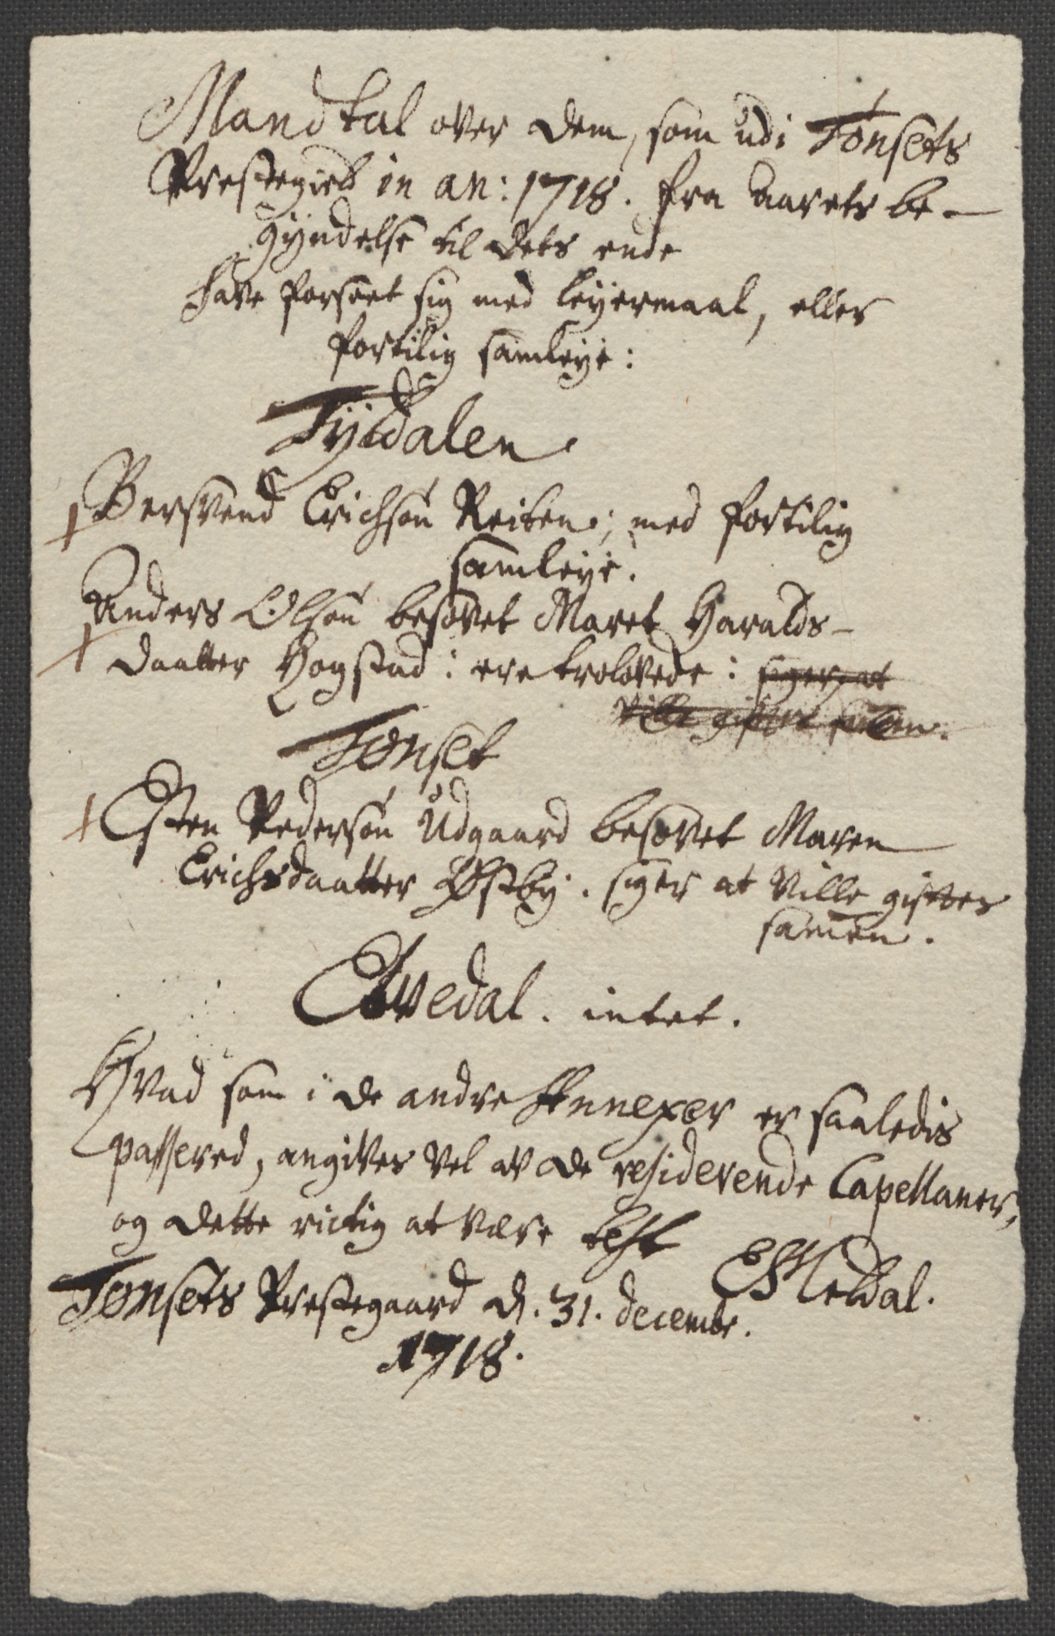 Mandtal over dem, som udi Tønsets
Prestegield in an: 1718. fra aarets be-
gyndelse til dets ende
have forseet sig med leyermaal, eller
fortilig samleye:
Tyldalen.
Bersvend Erichsøn Reiten; med fortilig
samleye.
Anders Olsøn besovet Maret Haralds-
daatter Hogstad : ere trolovede : siger at
Ville giftes samen.
Tønset
Esten Pedersøn Udgaard besovet Maren
Erichsdaatter Østby. siger at Ville giftes
samen.
Qvedal. intet.
Hvad som i de andre Annexer er saaledis
passered, angives vel av de residerende Capellaner,
og dette rictig at være test
EMeldal.
Tønsets Prestegaard d. 31. decembr.
1718.